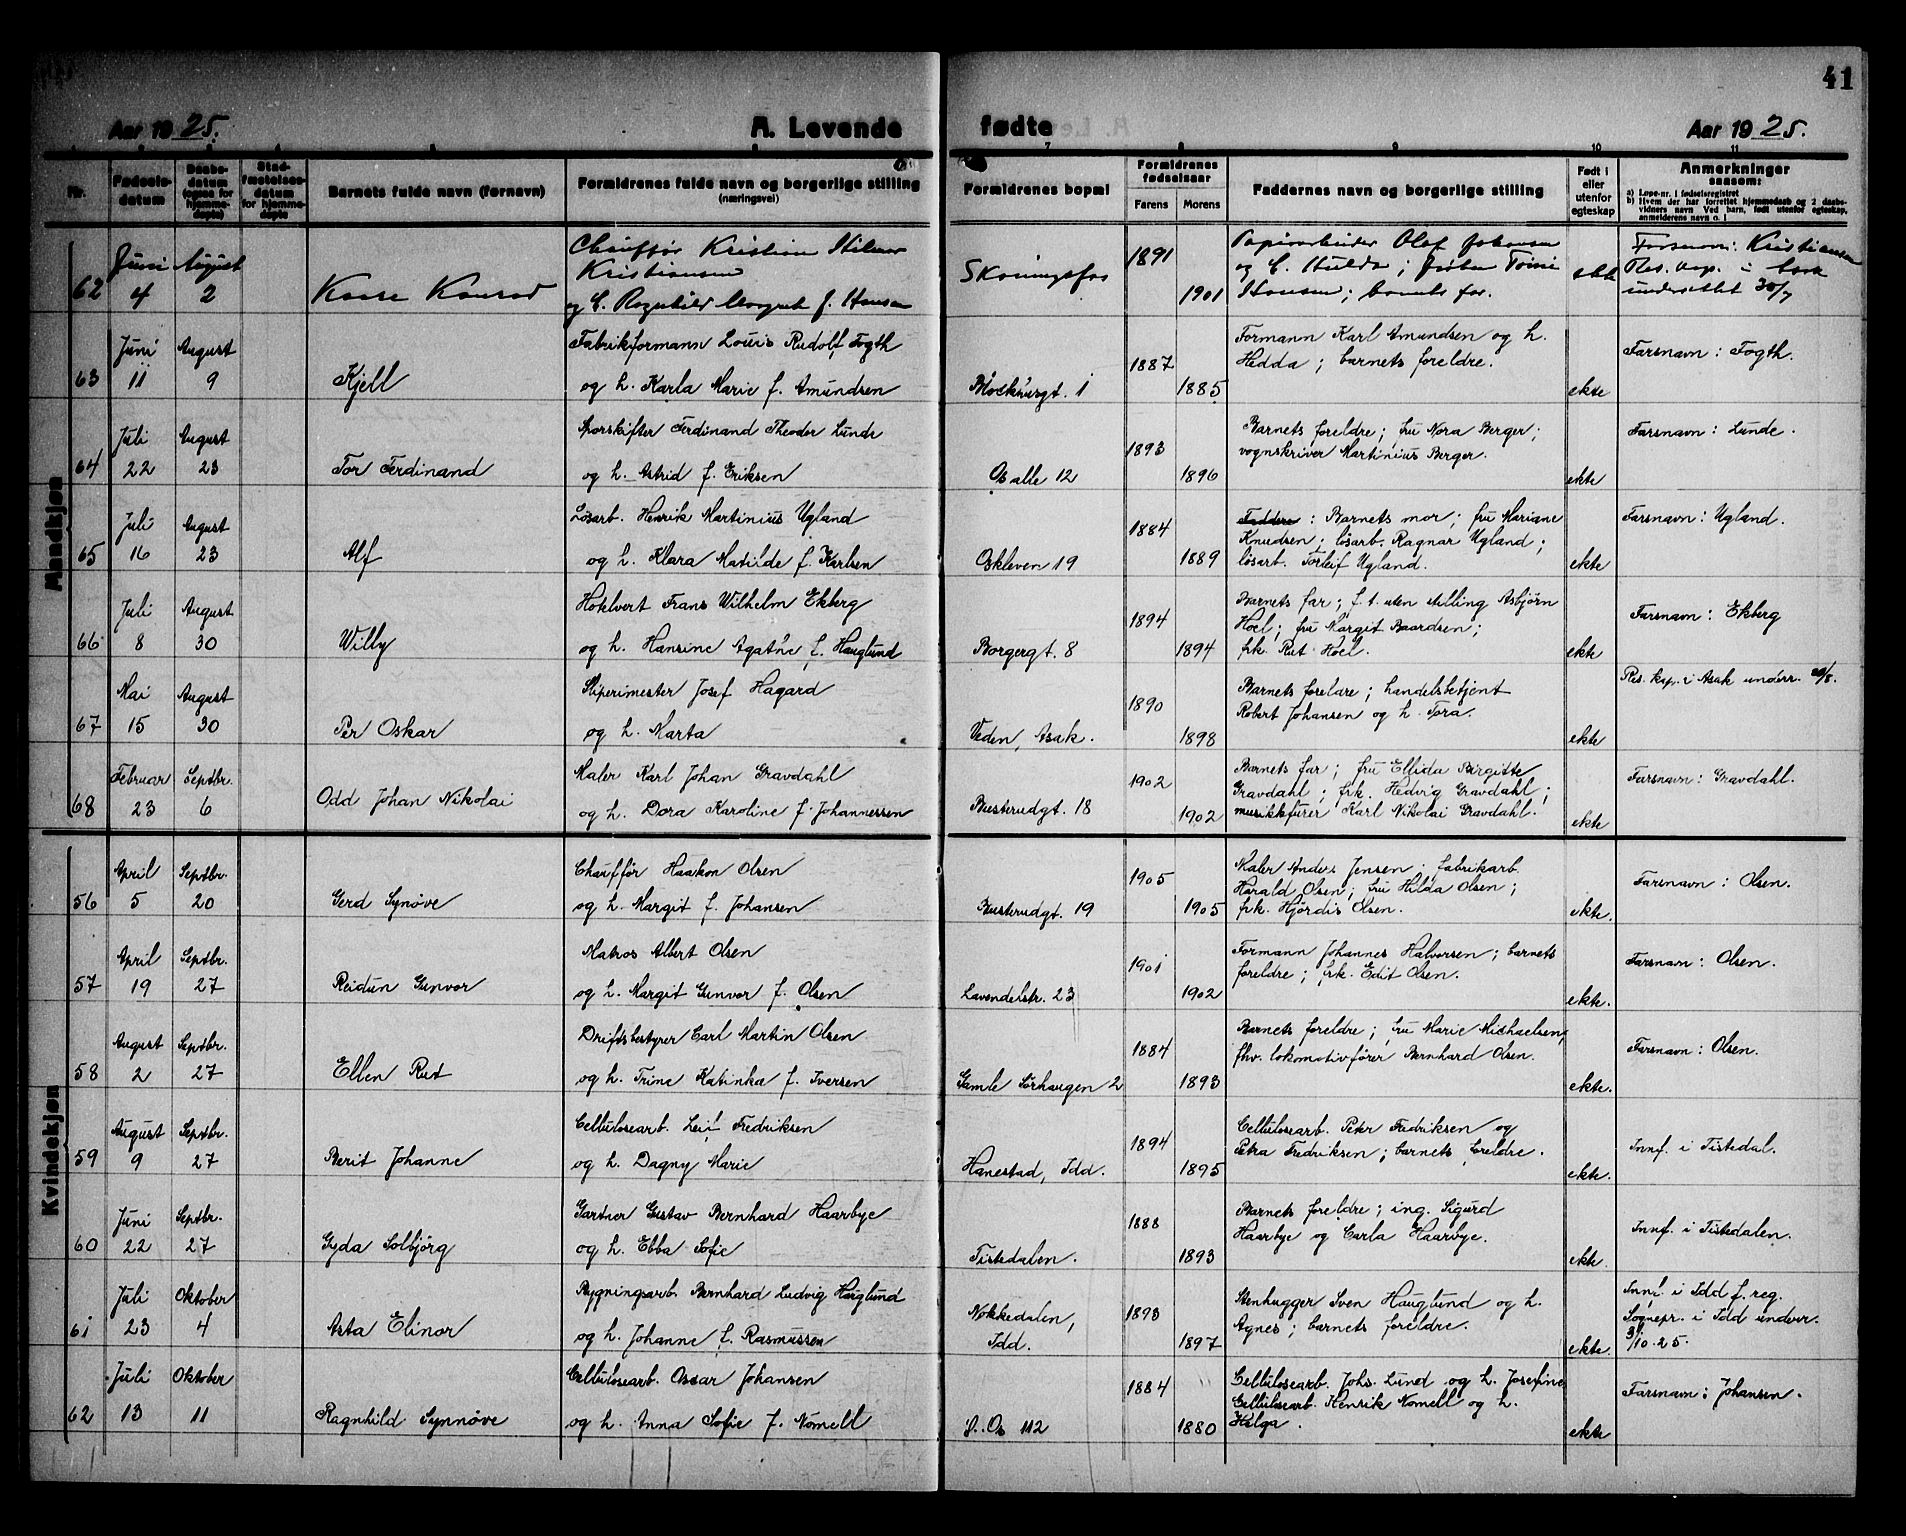 41
Aar 1925.
A. Levende
fødte
Aar 1925.
7 8 9 10 11
Nr.
Fødsels-
datum
Daabs-
datum
(ogsaa for
hjemme-
døpte)
Stad-
fæstelses-
datum
for hjemme-
døpte
Barnets fulde navn (fornavn)
Forældrenes fulde navn og borgerlige stilling
(næringsvei)
Forældrenes bopæl
Forældrenes
fødselsaar
Farens
Morens
Faddernes navn og borgerlige stilling
Født i
eller
utenfor
egteskap
Anmerkninger
saasom:
a) Løpe-nr. i fødselsregistret
b) Hvem der har forrettet hjemmedaab og 2 daabs-
vidners navn. Ved barn, født utenfor egteskap,
anmelderens navn o. l.
Mandkjøn
62
Juni
4
August
2
Kaare Konrad
Chauffør Kristian Hilmar
Kristiansen
og h. Ragnhild Margret f. Hansen
Skoningsfos
1891
1901
Papirarbeider Olaf Johansen
og h. Hulda; frøken
Hansen; barnets far.
ekte
Farsnavn: Kristiansen
Res. kap. i Asak
underrettet 30/7
63
Juni
11
August
9
Kjell
Fabrikformann Louis Rudolf Fogth
og h. Karla Marie f. Amundsen
Blokhusgt. 1
1887
1885
Formann Karl Amundsen og h.
Hedda; barnets foreldre.
ekte
Farsnavn: Fogth.
64
Juli
22
August
23
Tor Ferdinand
Sporskifter Ferdinand Theodor Lunde
og h. Astrid f. Eriksen
Os alle 12
1893
1896
Barnets foreldre; fru Nora Berger;
vognskriver Martinius Berger.
ekte
Farsnavn: Lunde.
65
Juli
16
August
23
Alf
Løsarb. Henrik Martinius Ugland
og h. Klara Matilde f. Karlsen
Oskleven 19
1884
1889
Faddere: Barnets mor; fru Mariane
Knudsen; løsarb. Ragnar Ugland;
løsarb. Torleif Ugland.
ekte
Farsnavn: Ugland.
66
Juli
8
August
30
Willy
Hotelvert Frans Wilhelm Ekberg
og h. Hansine Agathe f. Hauglund
Borgergt. 8
1894
1894
Barnets far; f. t. uten stilling Asbjørn
Hoel; fru Margit Baardsen;
frk. Rut Hoel.
ekte
Farsnavn: Ekberg
67
Mai
15
August
30
Per Oskar
Sliperimester Josef Hagard
og h. Marta
Veden, Asak.
1890
1898
Barnets foreldre; handelsbetjent
Robert Johansen og h. Tora.
ekte
Res. kap. i Asak underr.
68
Februar
23
Septbr.
6
Odd Johan Nikolai
Maler Karl Johan Gravdahl
og h. Dora Karoline f. Johannessen
Busterudgt. 18
1902
1902
Barnets far; fru Ellida Birgitte
Gravdahl; frk. Hedvig Gravdahl;
musikkfører Karl Nikolai Gravdahl.
ekte
Farsnavn: Gravdahl.
Kvindekjøn
56
April
5
Septbr.
20
Gerd Synøve
Chauffør Haakon Olsen
og h. Margit f. Johansen
Busterudgt. 19
1905
1905
Maler Anders Jensen; fabrikarb.
Harald Olsen; fru Hilda Olsen;
frk. Hjørdis Olsen.
ekte.
Farsnavn: Olsen.
57
April
19
Septbr.
27
Reidun Gunvor
Matros Albert Olsen
og h. Margit Gunvor f. Olsen
Lavendelstr. 23
1901
1902
Formann Johannes Halvorsen; barnets
foreldre; frk. Edit Olsen.
ekte.
Farsnavn: Olsen.
58
August
2
Septbr.
27
Ellen Rut
Driftsbestyrer Carl Martin Olsen
og h. Trine Katinka f. Iversen
Gamle Sørhaugen 2
1884
1893
Barnets foreldre; fru Marie Michaelsen,
fhv. lokomotivfører Bernhard Olsen.
ekte.
Farsnavn: Olsen.
59
August
9
Septbr.
27
Berit Johanne
Cellulosearb. Leif Fredriksen
og h. Dagny Marie
Hanestad, Idd.
1894
1895
Cellulosearb. Peter Fredriksen og
Petra Fredriksen; barnets foreldre.
ekte.
Innf. i Tistedal.
60
Juni
22
Septbr.
27
Gyda Solbjørg
Gartner Gustav Bernhard Haarbye
og h. Ebba Sofie
Tistedalen.
1888
1893
Barnets foreldre; ing. Sigurd
Haarbye og Carla Haarbye.
ekte
Innf. i Tistedalen.
61
Juli
23
Oktober
4
Asta Elinor
Bygningsarb. Bernhard Ludvig Hauglund
og h. Johanne f. Rasmussen
Nokkedalen,
Idd.
1893
1897
Stenhugger Sven Hauglund og h.
Agnes; barnets foreldre.
ekte.
Innf. i Idd f. reg.
Sognepr. i Idd underr.
3/10-25.
62
Juli
13
Oktober
11
Ragnhild Synnøve
Cellulosearb. Oscar Johansen
og h. Anna Sofie f. Nomell
Os 112
1884
1880
Cellulosearb. Johs. Lund og h. Josefine
Cellulosearb. Henrik Nomell og h.
Helga.
ekte
Farsnavn: Johansen.